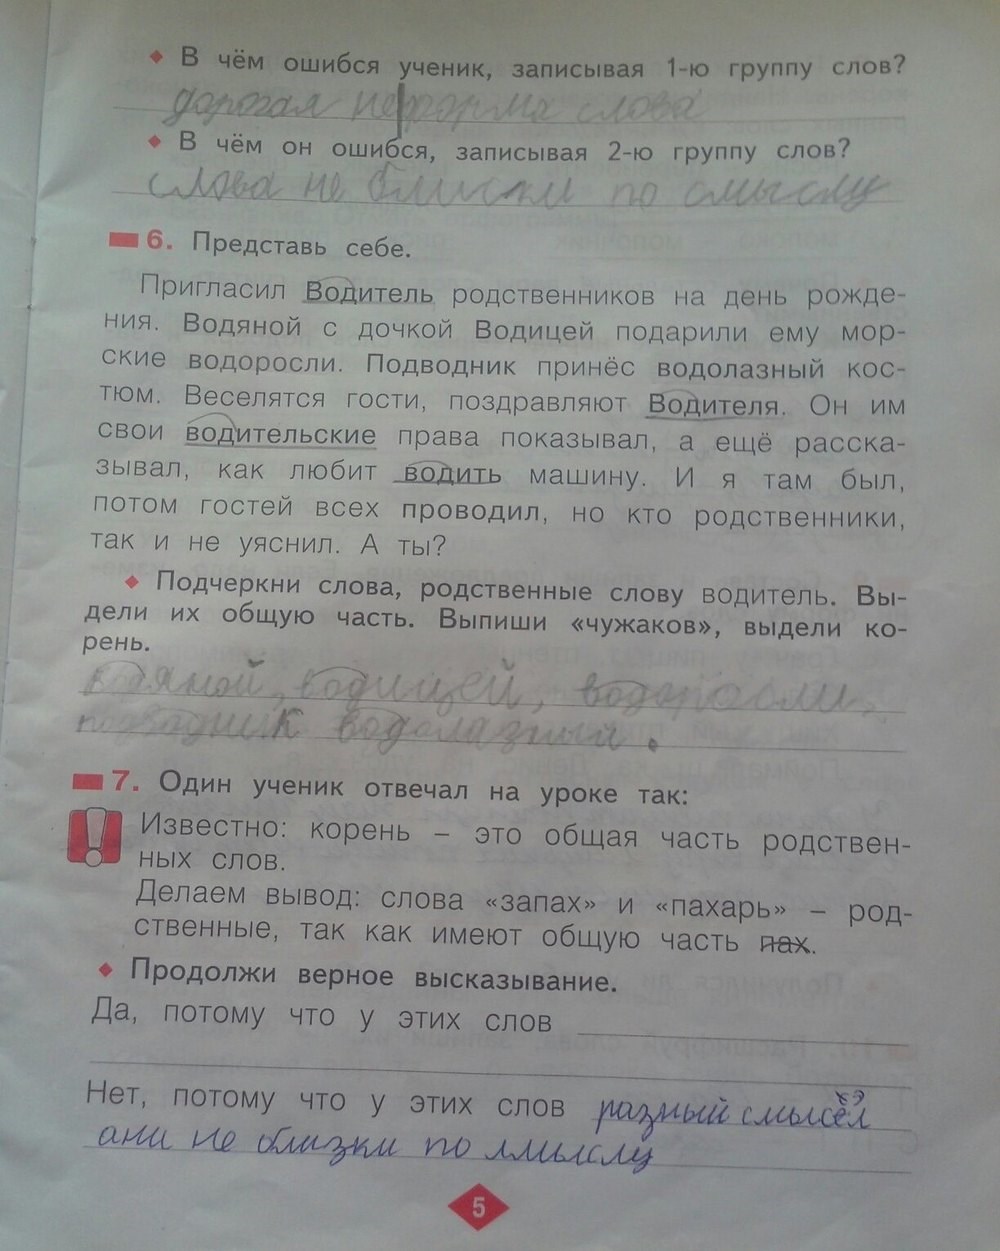 В чём ошибся ученик, записывая 1-ю группу слов?
дорогая не форма слова
В чём он ошибся, записывая 2-ю группу слов?
слова не блиски по смыслу
6. Представь себе.
Пригласил Водитель родственников на день рожде-
ния. Водяной с дочкой Водицей подарили ему мор-
ские водоросли. Подводник принёс водолазный кос-
тюм. Веселятся гости, поздравляют Водителя. Он им
свои водительские права показывал, а ещё расска-
зывал, как любит водить машину. И я там был,
потом гостей всех проводил, но кто родственники,
так и не уяснил. А ты?
Подчеркни слова, родственные слову водитель. Вы-
дели их общую часть. Выпиши «чужаков», выдели ко-
рень.
водяной, водицей, водоросли,
подводник водолазный.
7. Один ученик отвечал на уроке так:
Известно: корень – это общая часть родствен-
ных слов.
Делаем вывод: слова «запах» и «пахарь» – род-
ственные, так как имеют общую часть пах.
Продолжи верное высказывание.
Да, потому что у этих слов
Нет, потому что у этих слов разный смысел
ани не близки по смыслу
5